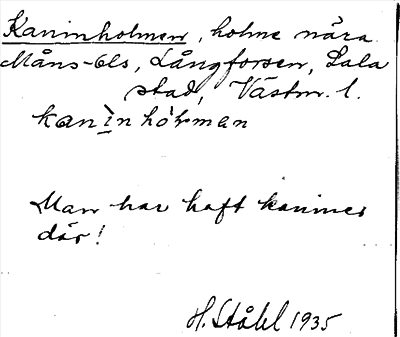 Kaninholmen, holme nära
Måns-Ols, Långforsen, Sala
stad, Västm. l.
kanìnhòlman
Man har haft kaniner
där!
H. Ståhl 1935